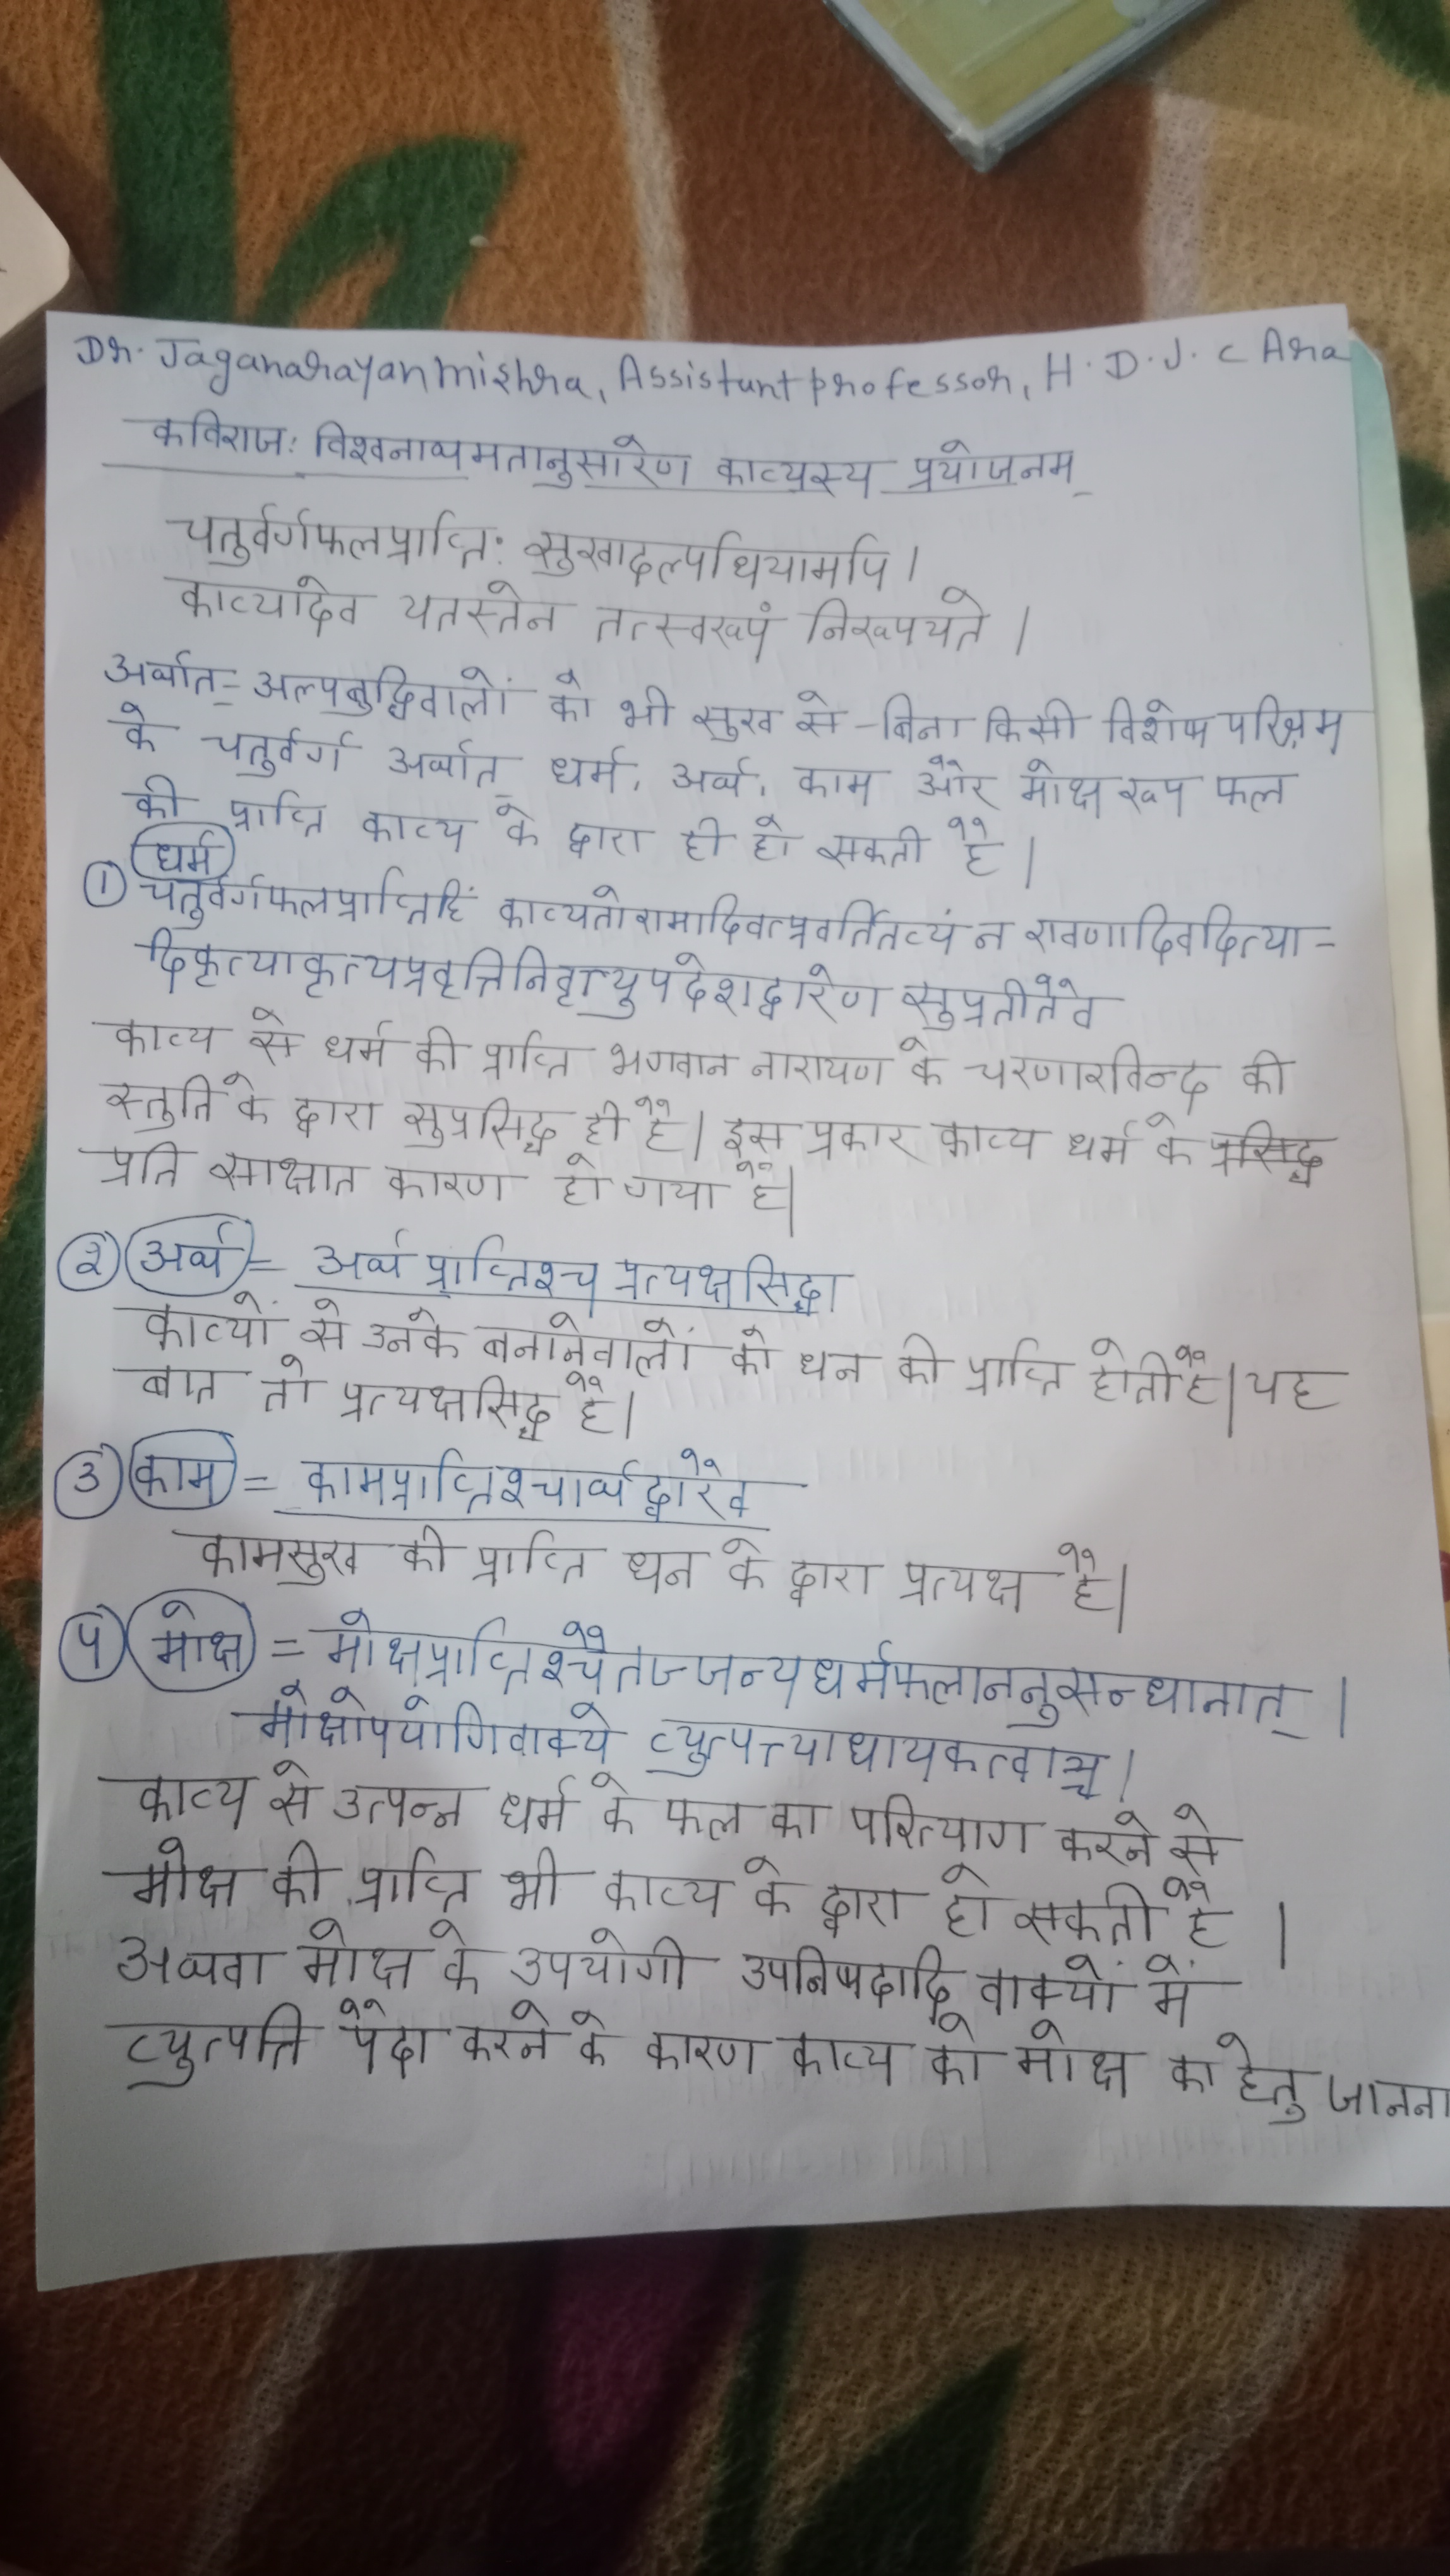 Dr. Jaganarayan Mishra, Assistunt professor, H. D. J. C Ara
कविराजः विश्वनाथमतानुसारेण काव्यस्य प्रयोजनम्
चतुर्वर्गफलप्राप्तिः सुखादल्पधियामपि ।
काव्यादेव यतस्तेन तत्स्वरूपं निरूप्यते ।
अर्थात्= अल्पबुद्धिवालों को भी सुख से - बिना किसी विशेष परिश्रम
के चतुर्वर्ग अर्थात् धर्म, अर्थ, काम और मोक्ष रूप फल
की प्राप्ति काव्य के द्वारा ही हो सकती है ।
धर्म
① चतुर्वर्गफलप्राप्तिर्हि काव्यतोरामादिवत्प्रवर्तितव्यं न रावणादिवदित्या-
दिकृत्याकृत्यप्रवृत्तिनिवृत्युपदेशद्वारेण सुप्रतीतैव
काव्य से धर्म की प्राप्ति भगवान नारायण के चरणारविन्द की
स्तुति के द्वारा सुप्रसिद्ध ही है । इस प्रकार काव्य धर्म के प्रसिद्ध
प्रति साक्षात कारण हो गया है।
② अर्थ = अर्थ प्राप्तिश्च प्रत्यक्षसिद्धा
काव्यों से उनके बनानेवालों को धन की प्राप्ति होती है। यह
बात तो प्रत्यक्षसिद्ध है।
③ काम = कामप्राप्तिश्चार्थद्वारैव
कामसुख की प्राप्ति धन के द्वारा प्रत्यक्ष है।
४ मोक्ष = मोक्षप्राप्तिश्चैतज्जन्यधर्मफलाननुसन्धानात् ।
मोक्षोपयोगिवाक्ये व्युत्पत्त्याधायकत्वाच्च ।
काव्य से उत्पन्न धर्म के फल का परित्याग करने से
मोक्ष की प्राप्ति भी काव्य के द्वारा हो सकती है ।
अथवा मोक्ष के उपयोगी उपनिषदादि वाक्यों में
व्युत्पत्ति पैदा करने के कारण काव्य को मोक्ष का हेतु जानना